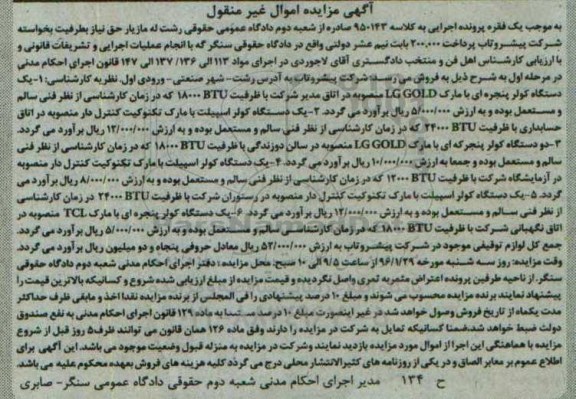 آگهی مزایده اموال غیر منقول
به موجب یک فقره پرونده اجرایی به کلاسه ۹۵۰۱۴۳ صادره از شعبه دوم دادگاه عمومی حقوقی رشت له مازیار حق نیاز بطرفیت بخواسته
شرکت پیشروتاب پرداخت ۲۰۰.۰۰۰ بابت نیم عشر دولتی واقع در دادگاه حقوقی سنگر که با انجام عملیات اجرایی و تشریفات قانونی و
با ارزیابی کارشناس اهل فن و منتخب دادگستری آقای لاجوردی در اجرای مواد ۱۱۳ الی ۱۳۶/ ۱۳۷ الی ۱۴۷ قانون اجرای احکام مدنی
در مرحله اول به شرح ذیل به فروش می رسد: شرکت پیشروتاب به آدرس رشت- شهر صنعتی- ورودی اول. نظریه کارشناسی: ۱-یک
دستگاه کولر پنجره ای با مارک LG GOLD منصوبه در اتاق مدیر شرکت با ظرفیت ۱۸۰۰۰ BTU که در زمان کارشناسی از نظر فنی سالم
و مستعمل بوده و به ارزش ۵/۰۰۰/۰۰۰ ریال برآورد می گردد. ۲-یک دستگاه کولر اسپیلت با مارک تکنوکیت کنترل دار منصوبه در اتاق
حسابداری با ظرفیت ۲۴۰۰۰ BTU که در زمان کارشناسی از نظر فنی سالم و مستعمل بوده و به ارزش ۱۲/۰۰۰/۰۰۰ ریال برآورد می گردد.
۳-دو دستگاه کولر پنجره ای با مارک LG GOLD منصوبه در سالن دوزندگی با ظرفیت ۱۸۰۰۰ BTU که در زمان کارشناسی از نظر فنی
سالم و مستعمل بوده و جمعا به ارزش ۱۰/۰۰۰/۰۰۰ ریال برآورد می گردد. ۴-یک دستگاه کولر اسپیلت با مارک تکنوکیت کنترل دار منصوبه
در آزمایشگاه شرکت با ظرفیت ۱۲۰۰۰ BTU که در زمان کارشناسی از نظر فنی سالم و مستعمل بوده و به ارزش ۸/۰۰۰/۰۰۰ ریال برآورد می
گردد. ۵-یک دستگاه کولر اسپیلت با مارک تکنوکیت کنترل دار منصوبه در رستوران شرکت با ظرفیت ۲۴۰۰۰ BTU در زمان کارشناسی
از نظر فنی سالم و مستعمل بوده و به ارزش ۱۲/۰۰۰/۰۰۰ ریال برآورد می گردد. ۶-یک دستگاه کولر پنجره ای با مارک TCL منصوبه در
اتاق نگهبانی شرکت با ظرفیت ۱۸۰۰۰ BTU که در زمان کارشناسی سالم و مستعمل بوده و به ارزش ۵/۰۰۰/۰۰۰ ریال برآورد می گردد.
جمع کل لوازم توقیفی موجود در شرکت پیشروتاب به ارزش ۵۲/۰۰۰/۰۰۰ ریال معادل حروفی پنجاه و دو میلیون ریال برآورد می گردد.
وقت مزایده: روز سه شنبه مورخه ۹۶/۱/۲۹ از ساعت ۹/۵ الی ۱۰ صبح. محل مزایده: دفتر اجرای احکام مدنی شعبه دوم دادگاه حقوقی
سنگر. از ناحیه طرفین پرونده اعتراض مثمر به ثمری واصل نگردیده و قیمت مزایده از مبلغ ارزیابی شده شروع و کسانیکه بالاترین قیمت را
پیشنهاد نمایند برنده مزایده محسوب می شوند و مبلغ ۱۰ درصد پیشنهادی را فی المجلس از برنده مزایده نقدا اخذ و مابقی ظرف حداکثر
مدت یکماه از تاریخ فروش وصول خواهد شد در غیر اینصورت مبلغ ۱۰ درصد مستندا به ماده ۱۲۹ قانون اجرای احکام مدنی به نفع صندوق
دولت ضبط خواهد شد. ضمنا کسانیکه تمایل به شرکت در مزایده را دارند وفق ماده ۱۲۶ همان قانون می توانند ظرف ۵ روز قبل از شروع
مزایده با هماهنگی این اجرا از اموال مورد مزایده بازدید نمایند وشرکت در مزایده به منزله قبول وضعیت موجود می باشد. این آگهی برای
اطلاع عموم بر معابر الصاق و در یکی از روزنامه های کثیرالانتشار محلی درج می گردد کلیه هزینه های فروش بعهده محکوم علیه می باشد.
ح ۱۳۴ مدیر اجرای احکام مدنی شعبه دوم حقوقی دادگاه عمومی سنگر- صابری